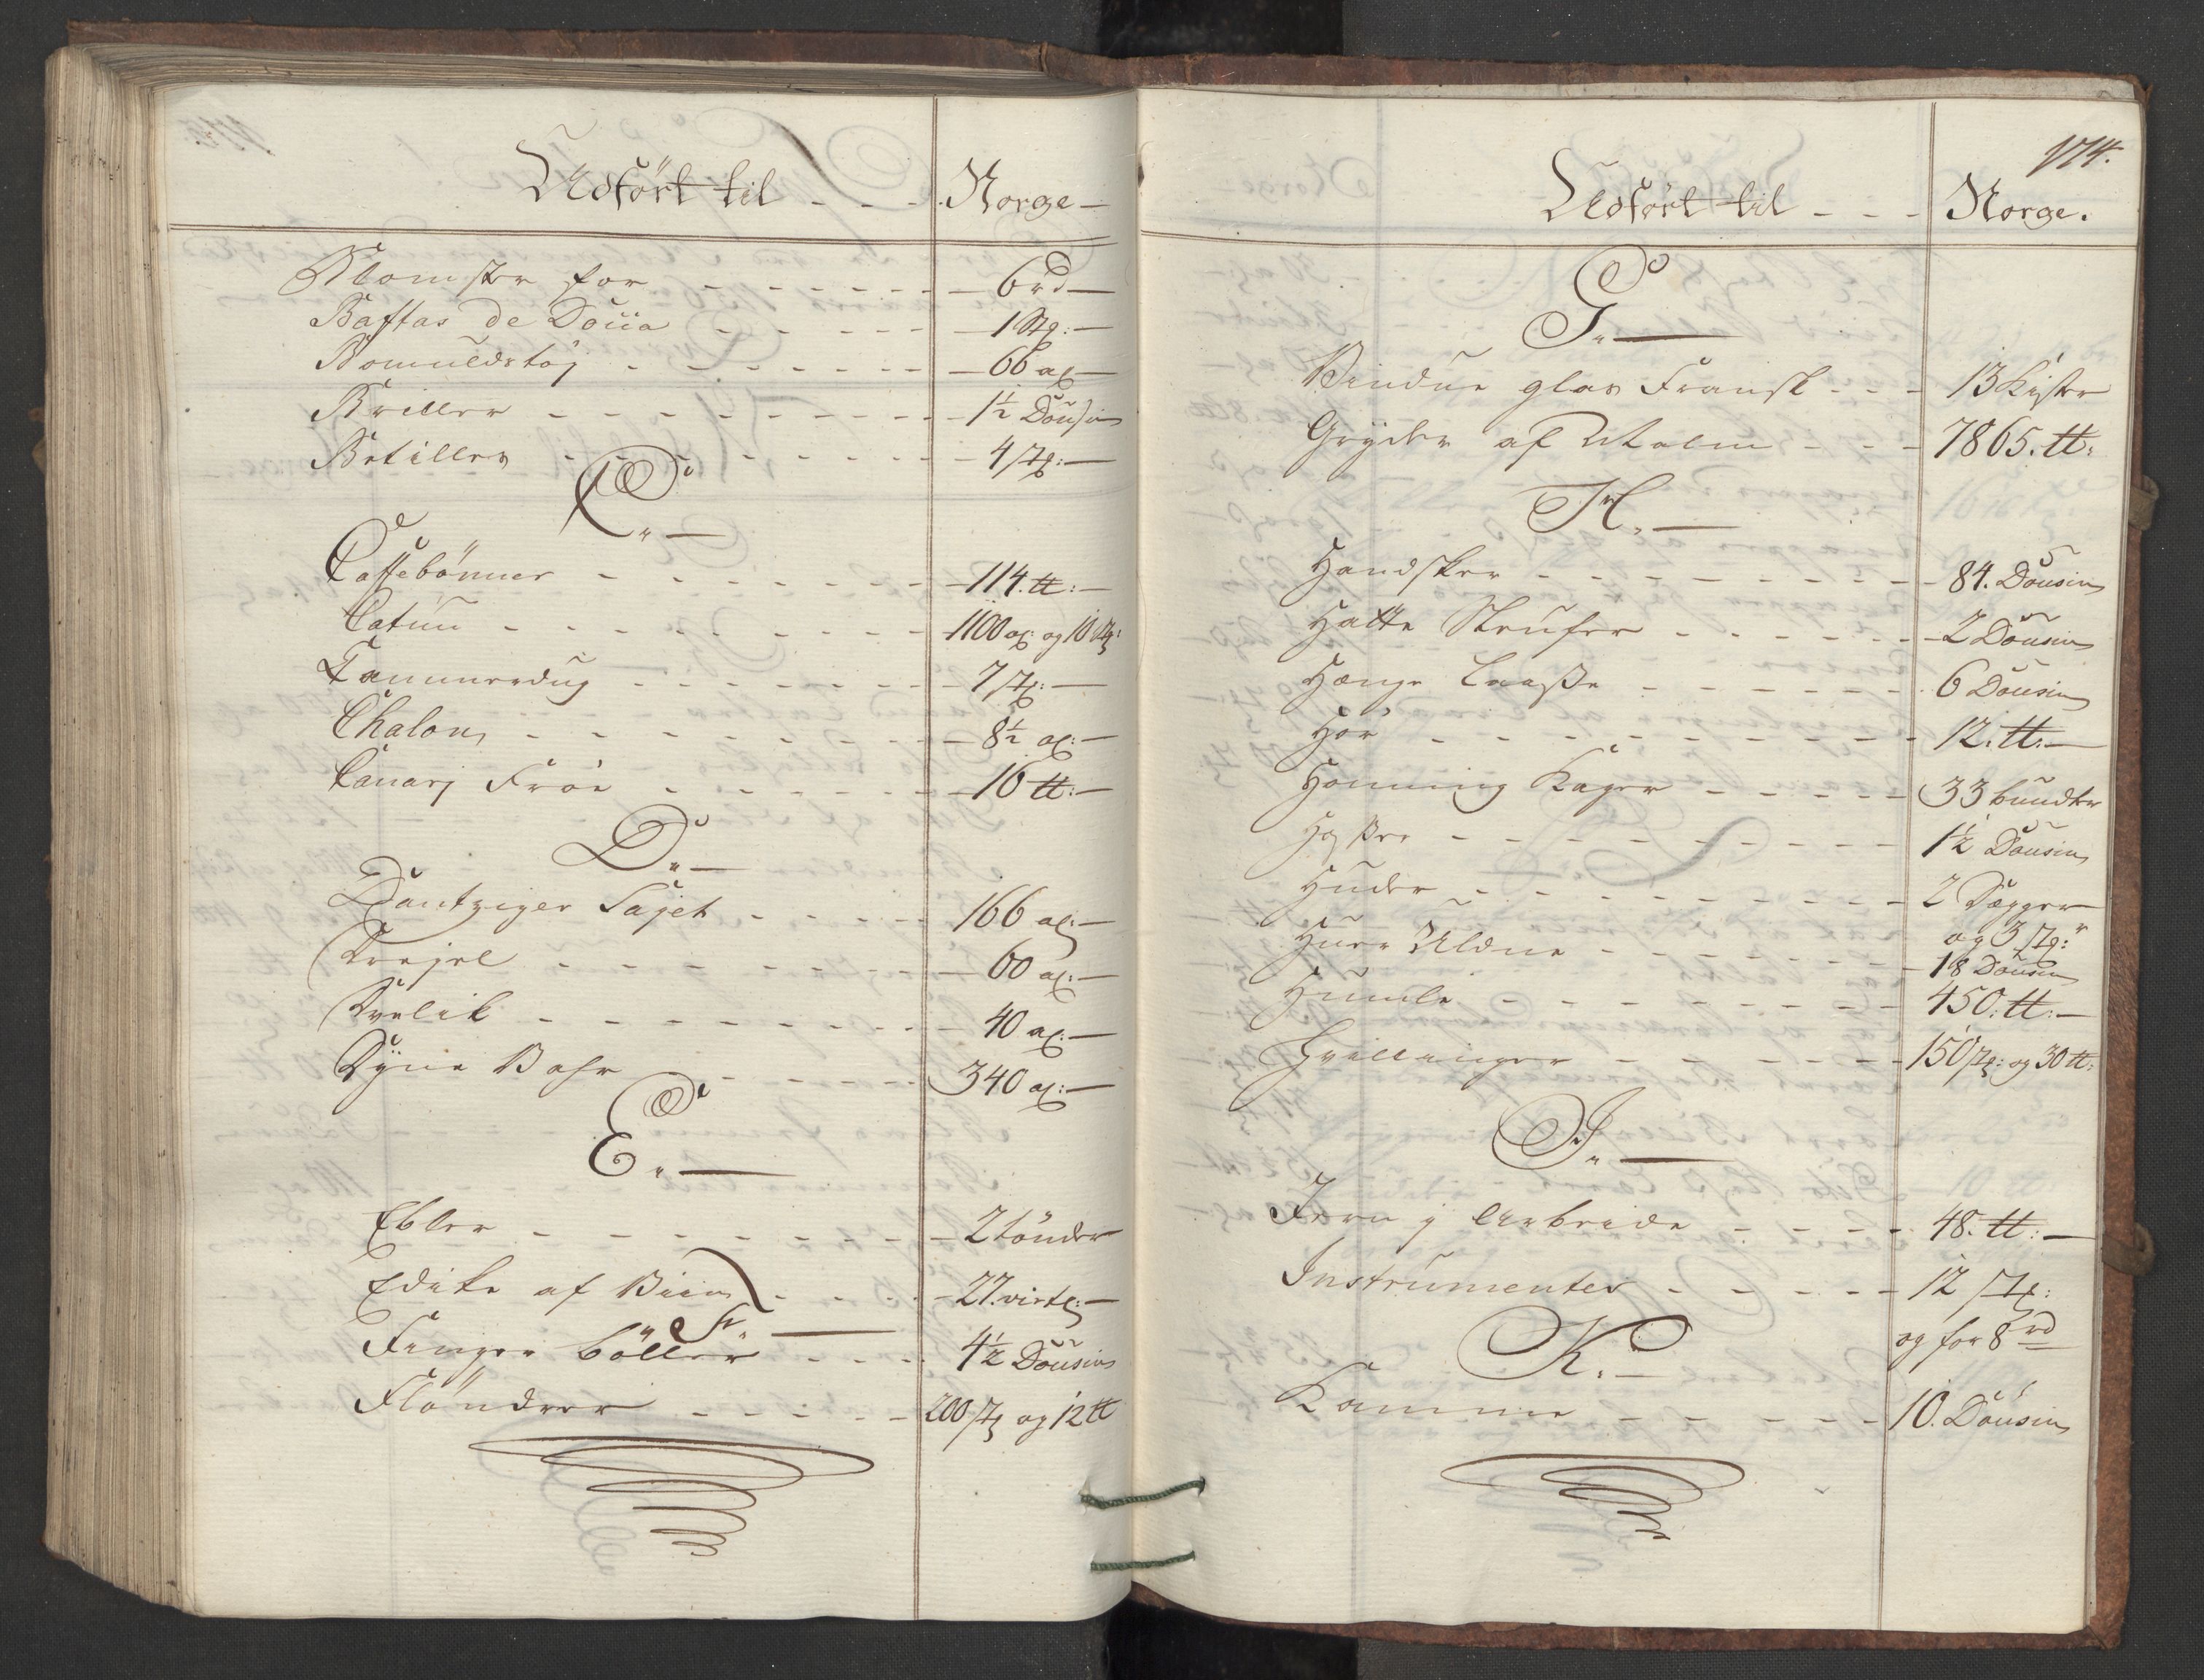 Udført til - - - Norge -
Blomster for - - - - - - 6 rd -
Baftas de Doua - - - - - 1 Stq: -
Bomuldstøj - - - - - - 66 al -
Briller - - - - - - - - 1½ Dousin
Betiller - - - - - - - - 4 stq: -
C. -
Caffebønner - - - - - - - 114. ℔: -
Catun - - - - - - - - 1100 al: og 10 stq:
Cammerdug - - - - - - - 7 stq: -
Chalon - - - - - - - - 8½ al: -
Canarj Frøe - - - - - - 16 ℔: -
D. -
Dantziger Sajet - - - - 166 al: -
Drejel - - - - - - - - 60 al: -
Dvelik - - - - - - - - 40 al: -
Dyne Vahr - - - - - - 340 al: -
E. -
Ebler - - - - - - - - 2 tönder
Edike af Viin - - - - 27. virtl: -
F. -
Finger böller - - - - 4½ Dousin
Flöndrer - - - - - 200 stq og 12 ℔
174.
Udført til - - - Norge.
G. -
Vindue glas Fransk - - - 13 Kister
Gryder af Malm - - - 7865. ℔:
H. -
Handsker - - - - - - - - 84. Dousin
Hatte Strufer - - - - - - 2 Dousin
Hænge Laaße - - - - - - 6 Dousin
Hör - - - - - - - - - - 12. ℔: -
Honning Kager - - - - - 33 bundter
Hoßer - - - - - - - - - 1½ Dousin
Huder - - - - - - - - - 2 Degger
og 3 stq:
Huer Uldne - - - - - - - 18 Dousin
Humle - - - - - - - - - 450. ℔: -
Hvillinger - - - - - - 150 stq: og 30 ℔:
I. -
Jern j Arbeide - - - - - 48. ℔: -
Instrumenter - - - - - 12 stq:
og for 8 rd
K. -
Kamme - - - - - - 10. Dousin